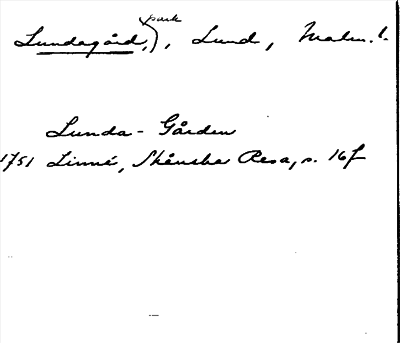 Lundagård, park), Lund, Malm. l.
Lunda-Gården
1751 Linné, Skånska Resa, s. 16f